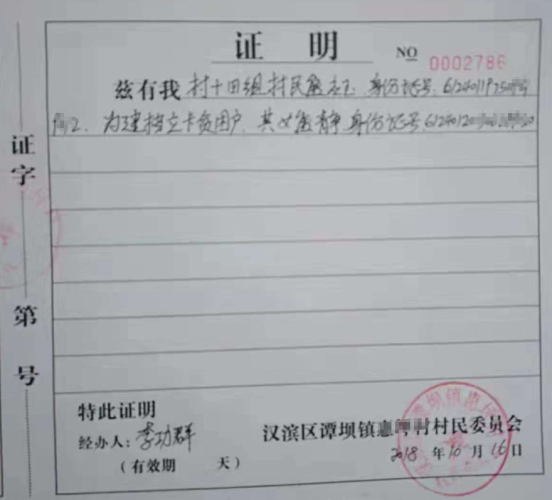 证 明
NO 0002786
兹有我村十田组村民熊 身份证号 612401197
2. 为建档立卡贫困户, 其女熊静 身份证号 61240120
证字 第 号
特此证明
经办人: 李功群
汉滨区谭坝镇惠 村村民委员会
(有效期 天)
2018 年 10 月 16 日